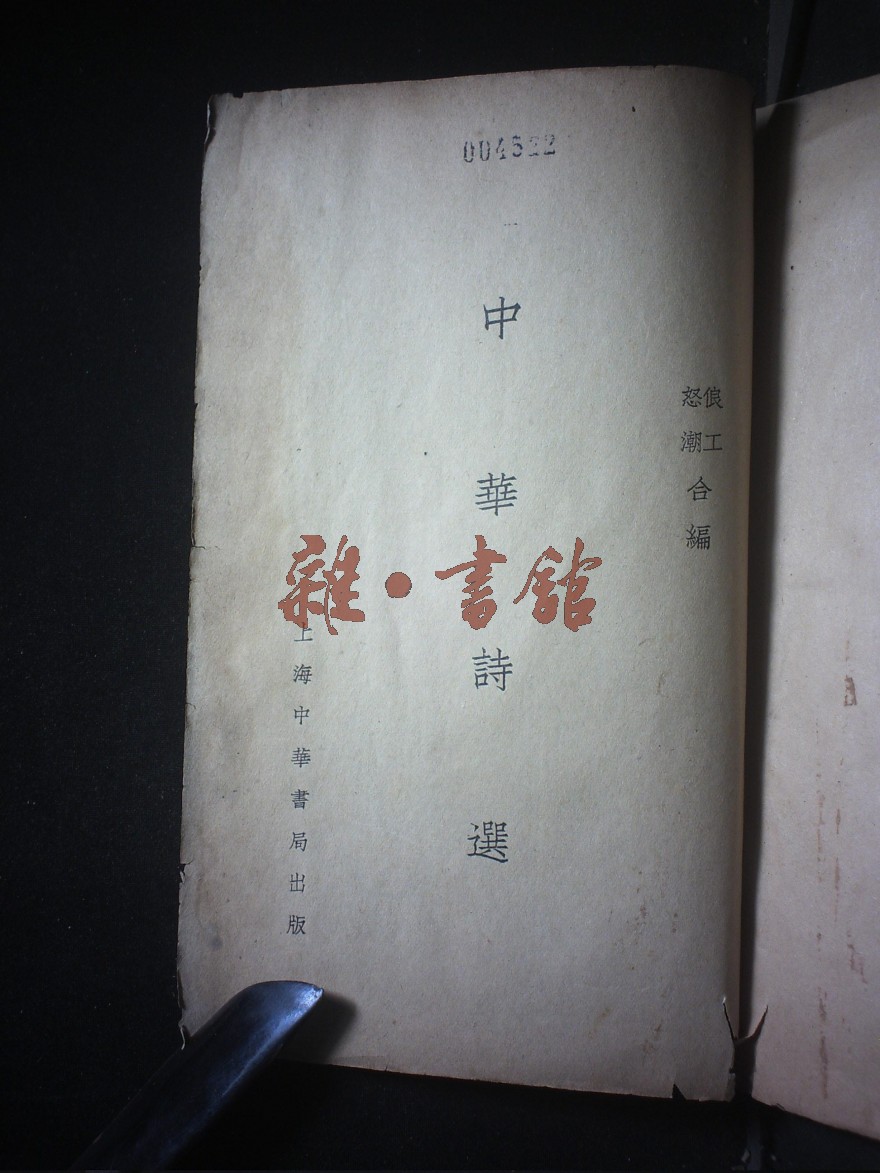 004522
俍工
怒潮
合編
中華詩選
上海中華書局出版
雜·書館